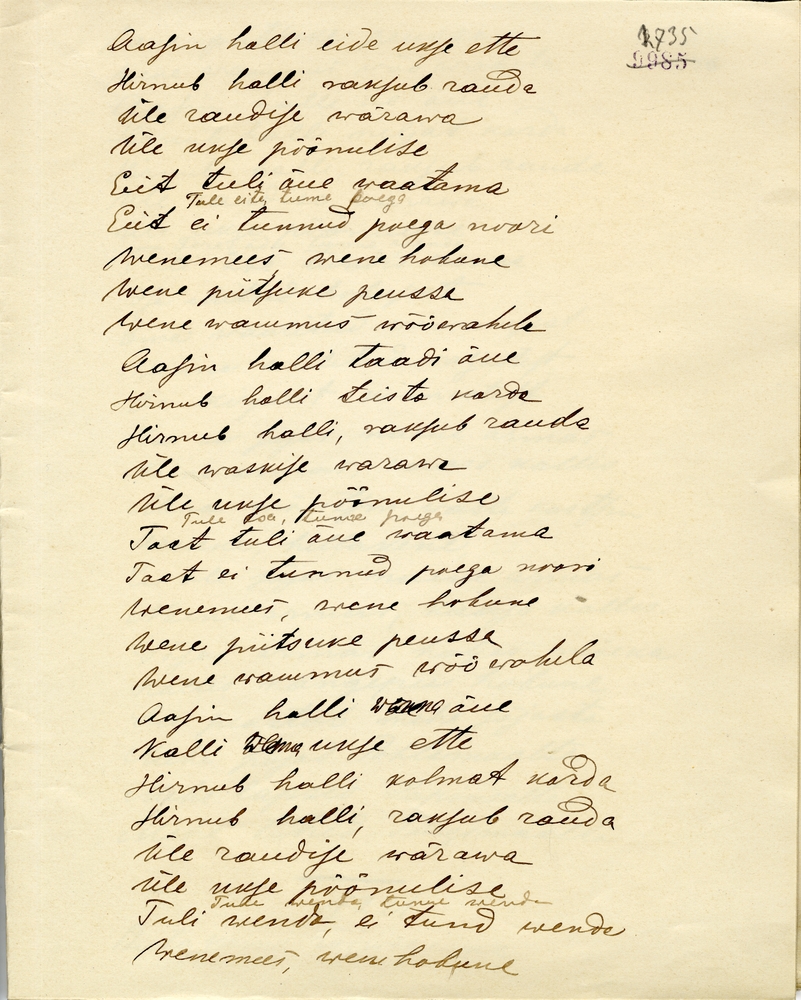 2735
9985
Aasin halli eide ukse ette
Hirnub halli raksub rauda
Üle raudise wärawa
Üle ukse pöönulise
Eit tuli äue waatama
Tule eite, tunne poega
Eit ei tunnud poega noori
Wenemees wene hobune
Wene piitsuke peussa
Wene wammus wöö wahela
Aasin halli taadi äue
Hirnub halli teista korda
Hirnub halli, raksub rauda
Üle waskise warawa
Üle ukse pöönulise
Tule taa, tunne poega
Taat tuli äue waatama
Taat ei tunnud poega noori
Wenemees, wene hobune
Wene piitsuke peussa
Wene wammus wöö wahela
Aasin halli wenna äue
Kalli wenna ukse ette
Hirnub halli kolmat korda
Hirnub halli, raksub rauda
Üle raudise wärawa
Üle ukse pöönulise
Tule wenda, tunne wenda
Tuli wenda, ei tund wenda
Wenemees, wene hobune